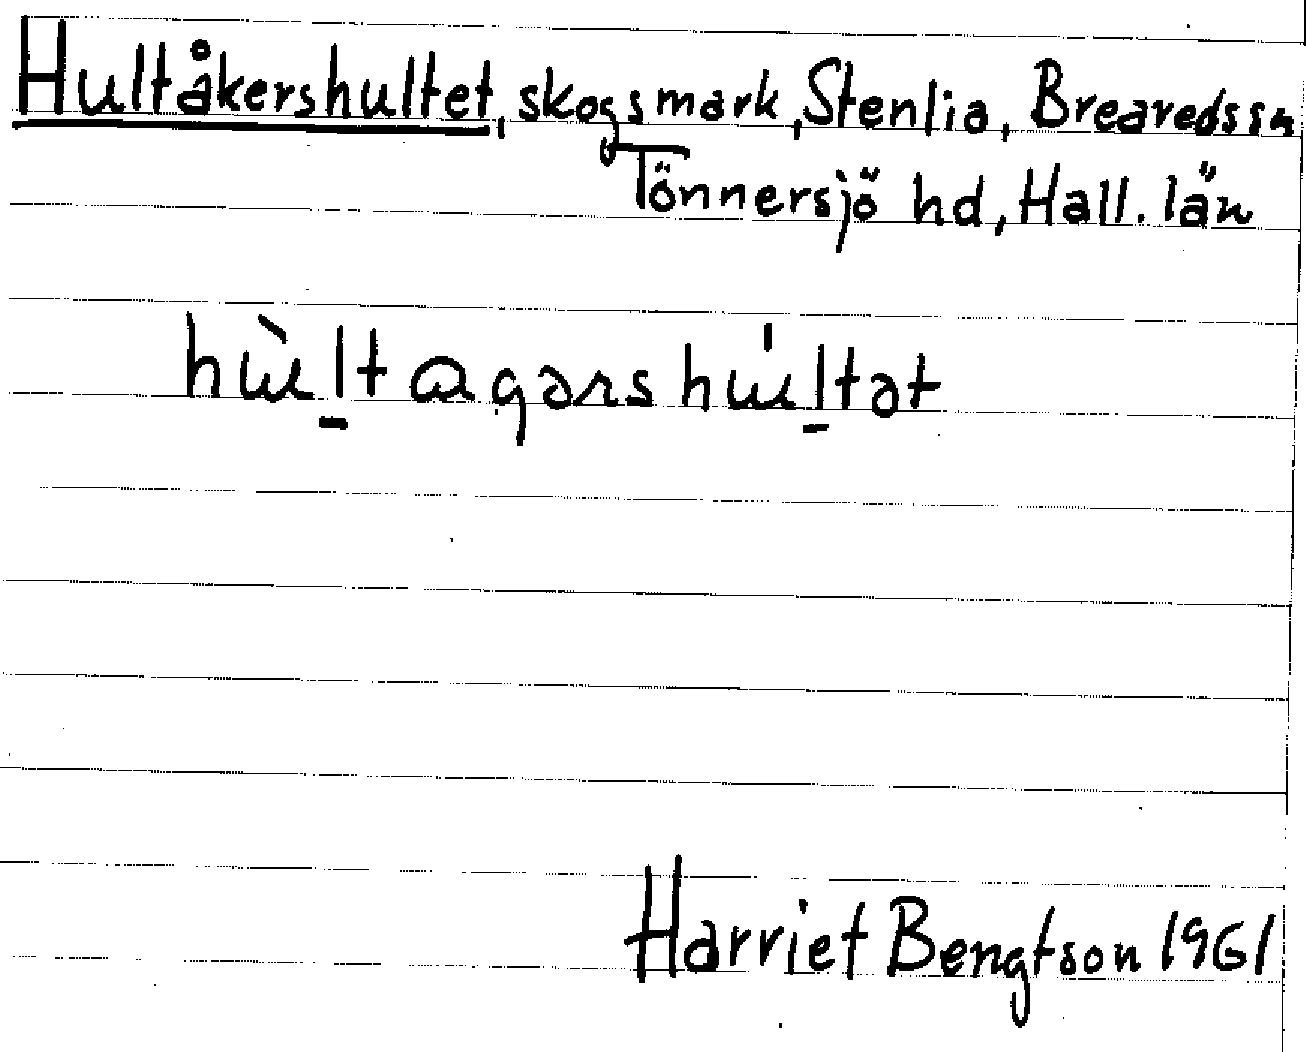 Hultåkershultet, skogsmark, Stenlia, Breareds sn
Tönnersjö hd, Hall. län
hɯ̀l̠tɑgərshɯ́l̠tət
Harriet Bengtson 1961